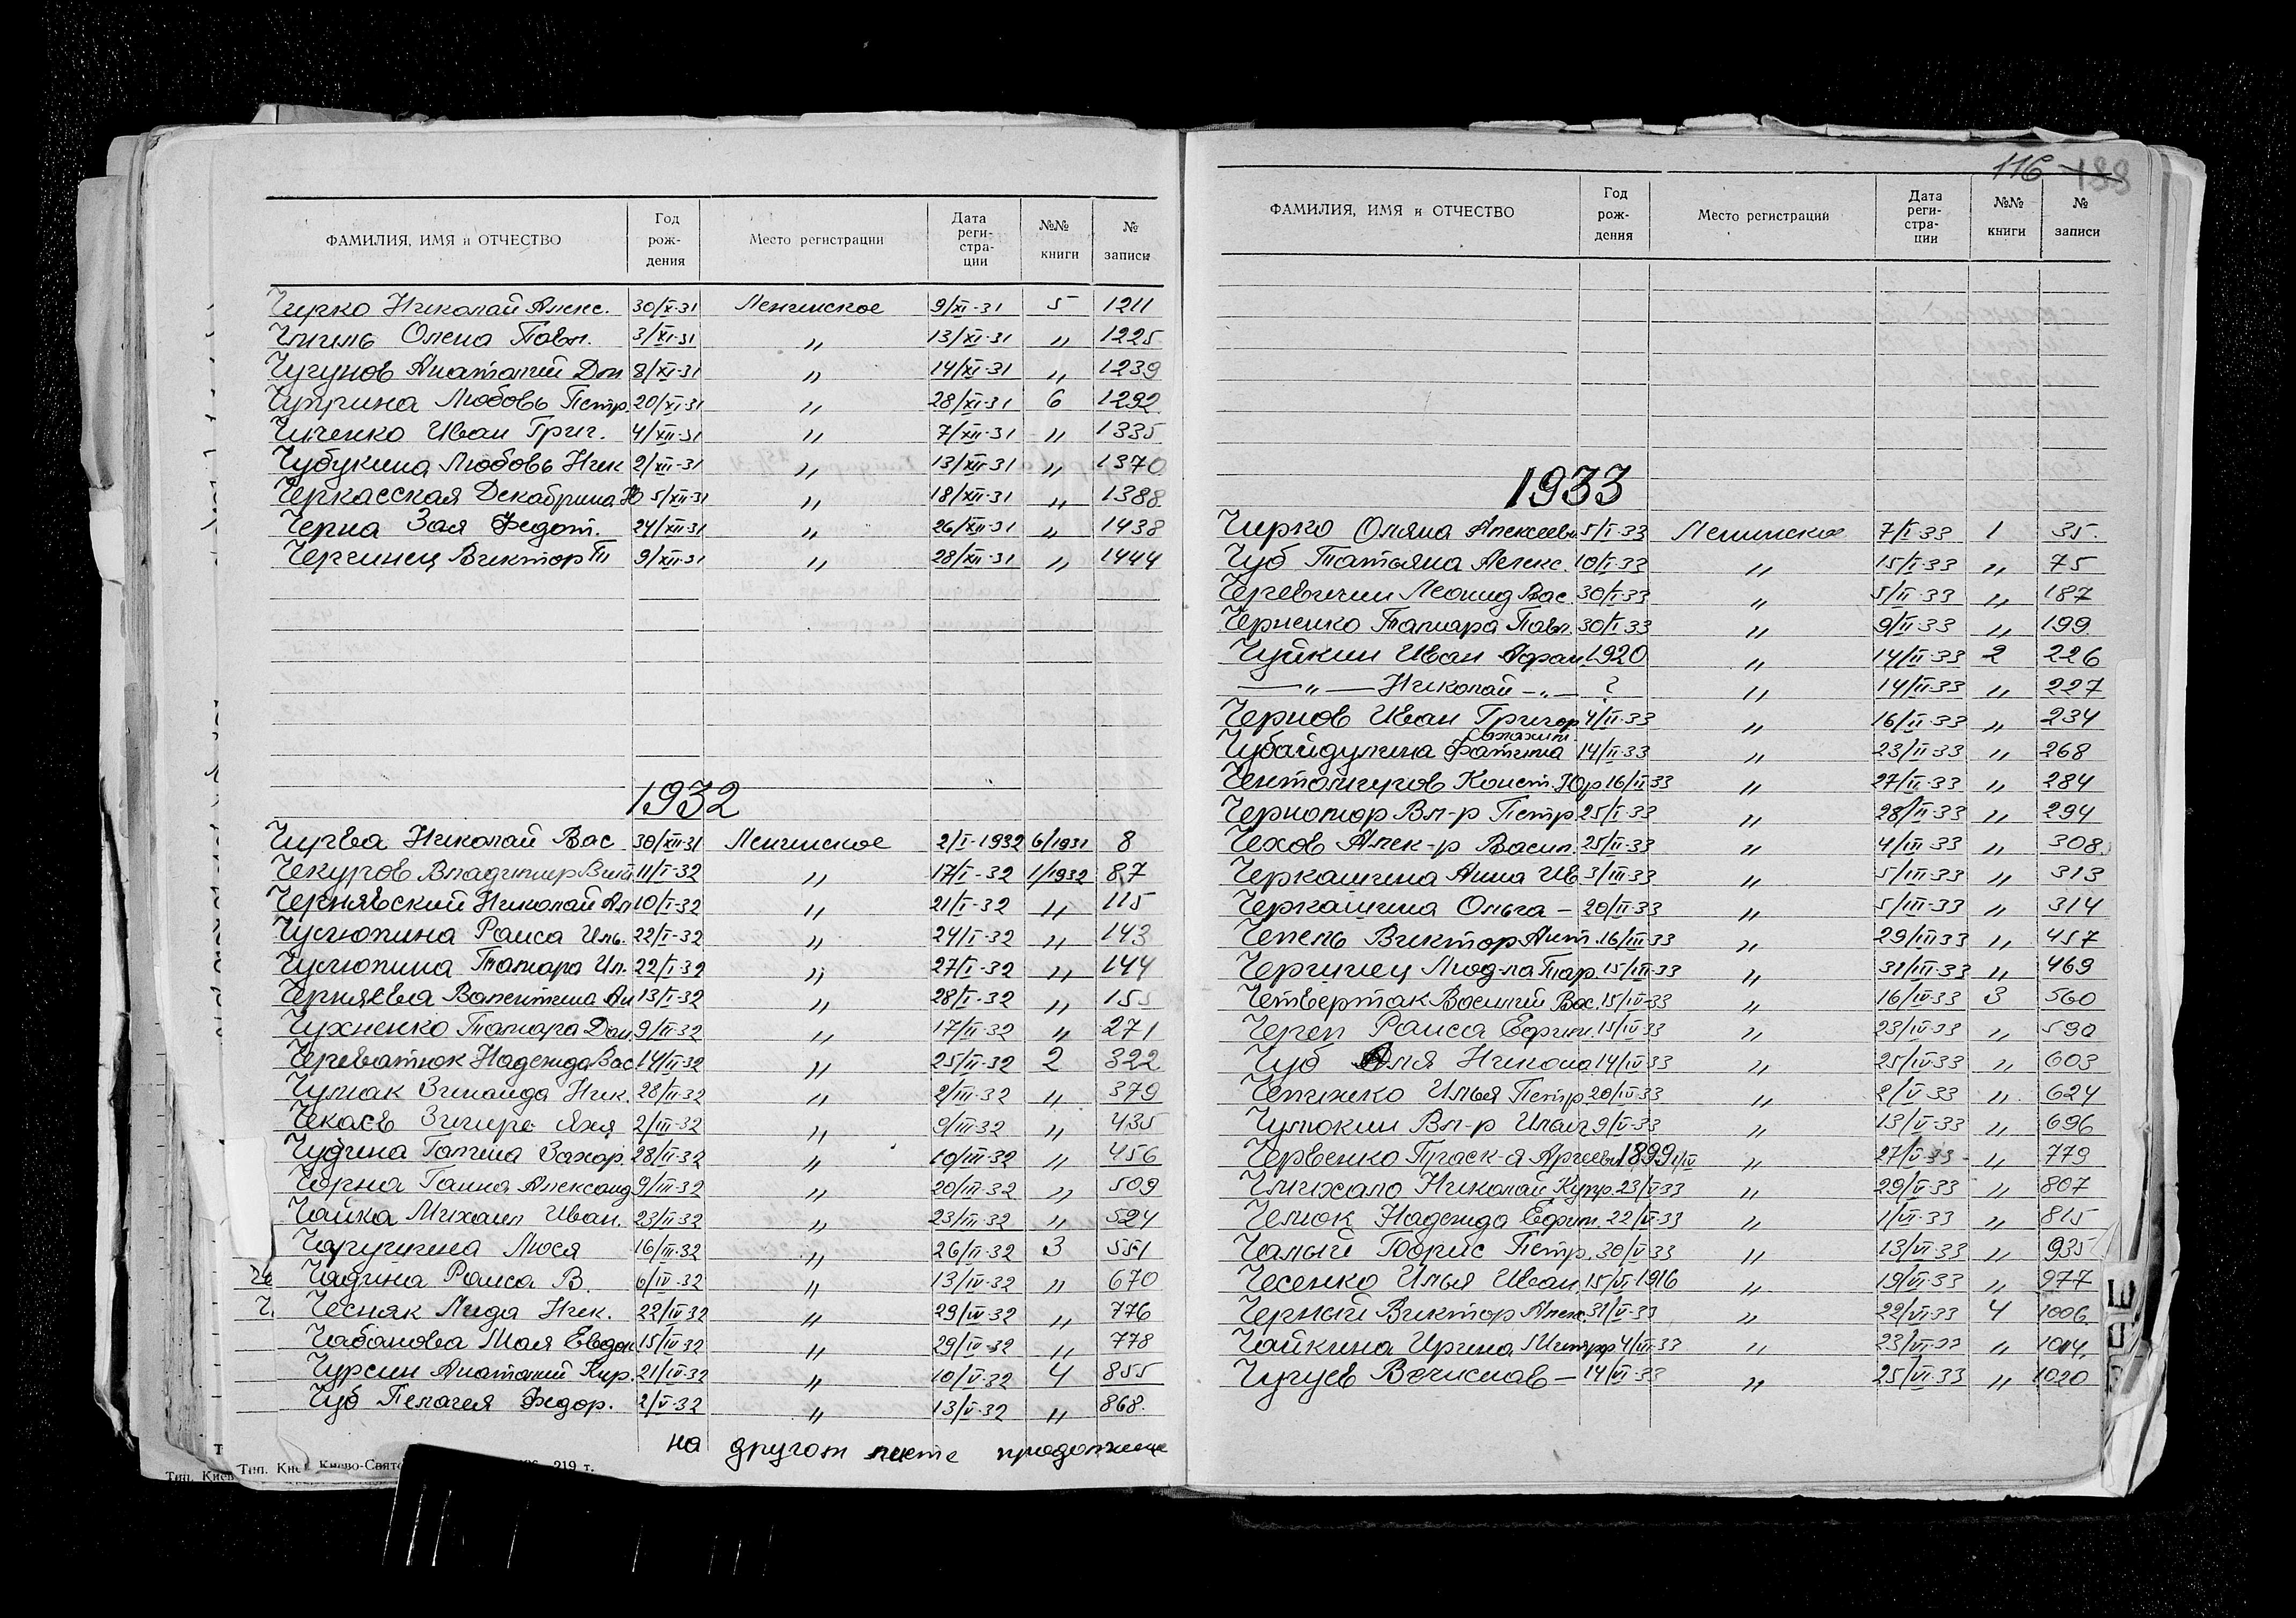 ФАМИЛИЯ, ИМЯ и ОТЧЕСТВО Год рож- дения Место регистрации Дата реги- стра- ции №№ книги № записи
Чирко Николай Алекс. 30/X-31 Ленинское 9/XI-31 5 1211
Чмиль Олена Павл. 3/XI-31 〃 13/XI-31 〃 1225
Чугунов Анатолий Дм 8/XI-31 〃 14/XI-31 〃 1239
Чуприна Любовь Петр. 20/XI-31 〃 28/XI-31 6 1292
Ченко Иван Григ. 4/XII-31 〃 7/XII-31 〃 1335
Чубукина Любовь Ник 2/XII-31 〃 13/XII-31 〃 1370
Черкасская Декабрина Ю 5/XII-31 〃 18/XII-31 〃 1388
Черна Зая Федот. 24/XII-31 〃 26/XII-31 〃 1438
Чергинец Виктор Т 9/XII-31 〃 28/XII-31 〃 1444
1932
Чирва Николай Вас 30/XII-31 Ленинское 2/I-1932 6/1931 8
Чекуров Владимир Вит 11/I-32 〃 17/I-32 1/1932 87
Чернявский Николай Ал 10/I-32 〃 21/I-32 〃 115
Чуслюпина Раиса Иль. 22/I-32 〃 24/I-32 〃 143
Чуслюпина Тамара Ил. 22/I-32 〃 27/I-32 〃 144
Черняева Валентина Ан 13/I-32 〃 28/I-32 〃 155
Чухненко Тамара Дан. 9/II-32 〃 17/II-32 〃 271
Череватюк Надежда Вас 14/II-32 〃 25/II-32 2 322
Чумак Зинаида Ник. 28/II-32 〃 2/III-32 〃 379
Чекаев 2/III-32 〃 9/III-32 〃 435
Чудина Галина Захар. 28/II-32 〃 10/III-32 〃 456
Чорна Ганна Александ 9/III-32 〃 20/III-32 〃 509
Чайка Михаил Иван. 23/II-32 〃 23/III-32 〃 524
Люся 16/III-32 〃 26/II-32 3 551
Чадина Раиса В. 6/IV-32 〃 13/IV-32 〃 670
Чесняк Лида Ник. 22/IV-32 〃 29/IV-32 〃 776
Чабанова Мая Евдок 15/IV-32 〃 29/IV-32 〃 778
Чурсин Анатолий Кир. 21/IV-32 〃 10/V-32 4 855
Чуб Пелагея Федор. 2/V-32 〃 13/V-32 〃 868
на другом листе продолжение
116 188
ФАМИЛИЯ, ИМЯ и ОТЧЕСТВО Год рож- дения Место регистрации Дата реги- стра- ции №№ книги № записи
1933
Чирко Оляна Алексеевн 5/I-33 Ленинское 7/I-33 1 35
Чуб Татьяна Алекс. 10/I-33 〃 15/I-33 〃 75
Черевичин Леонид Вас. 30/I-33 〃 5/II-33 〃 187
Черненко Тамара Павл. 30/I-33 〃 9/II-33 〃 199
Чуйкин Иван Афан 1920 〃 14/II-33 2 226
— 〃 — Николай — 〃 — ? 〃 14/II-33 〃 227
Чернов Иван Григор 4/II-33 〃 16/II-33 〃 234
Чубайдулина Фатима 14/II-33 〃 23/II-33 〃 268
Конст. Юр 16/II-33 〃 27/II-33 〃 284
Черномор Вл-р Петр 25/I-33 〃 28/II-33 〃 294
Чехов Алек-р Васил. 25/II-33 〃 4/III-33 〃 308
Черкашина Анна Ив 3/III-33 〃 5/III-33 〃 313
Черкашина Ольга — 20/II-33 〃 5/III-33 〃 314
Чепель Виктор Ант. 16/III-33 〃 29/III-33 〃 457
Чергинец Люд-ла Тар. 15/III-33 〃 31/III-33 〃 469
Четвертак Василий Вас. 15/IV-33 〃 16/IV-33 3 560
Череп Раиса Ефим. 15/IV-33 〃 23/IV-33 〃 590
Чуб Аля Никола 14/IV-33 〃 25/IV-33 〃 603
Илья Петр 20/IV-33 〃 2/V-33 〃 624
Чумокин Вл-р 9/V-33 〃 13/V-33 〃 696
Червенко 1899 〃 27/V-33 〃 779
Чмихало Николай Купр. 23/V-33 〃 29/V-33 〃 807
Чемок Надежда Ефим. 22/V-33 〃 1/VI-33 〃 815
Чалый Борис Петр. 30/V-33 〃 13/VI-33 〃 935
Чесенко Илья Иван. 15/VI-1916 〃 19/VI-33 〃 977
Черный Виктор Алек. 31/V-33 〃 22/VI-33 4 1006
Чайкина Ирина 4/VI-33 〃 23/VI-33 〃 1014
Чугуев Вячислав — 14/VI-33 〃 25/VI-33 〃 1020